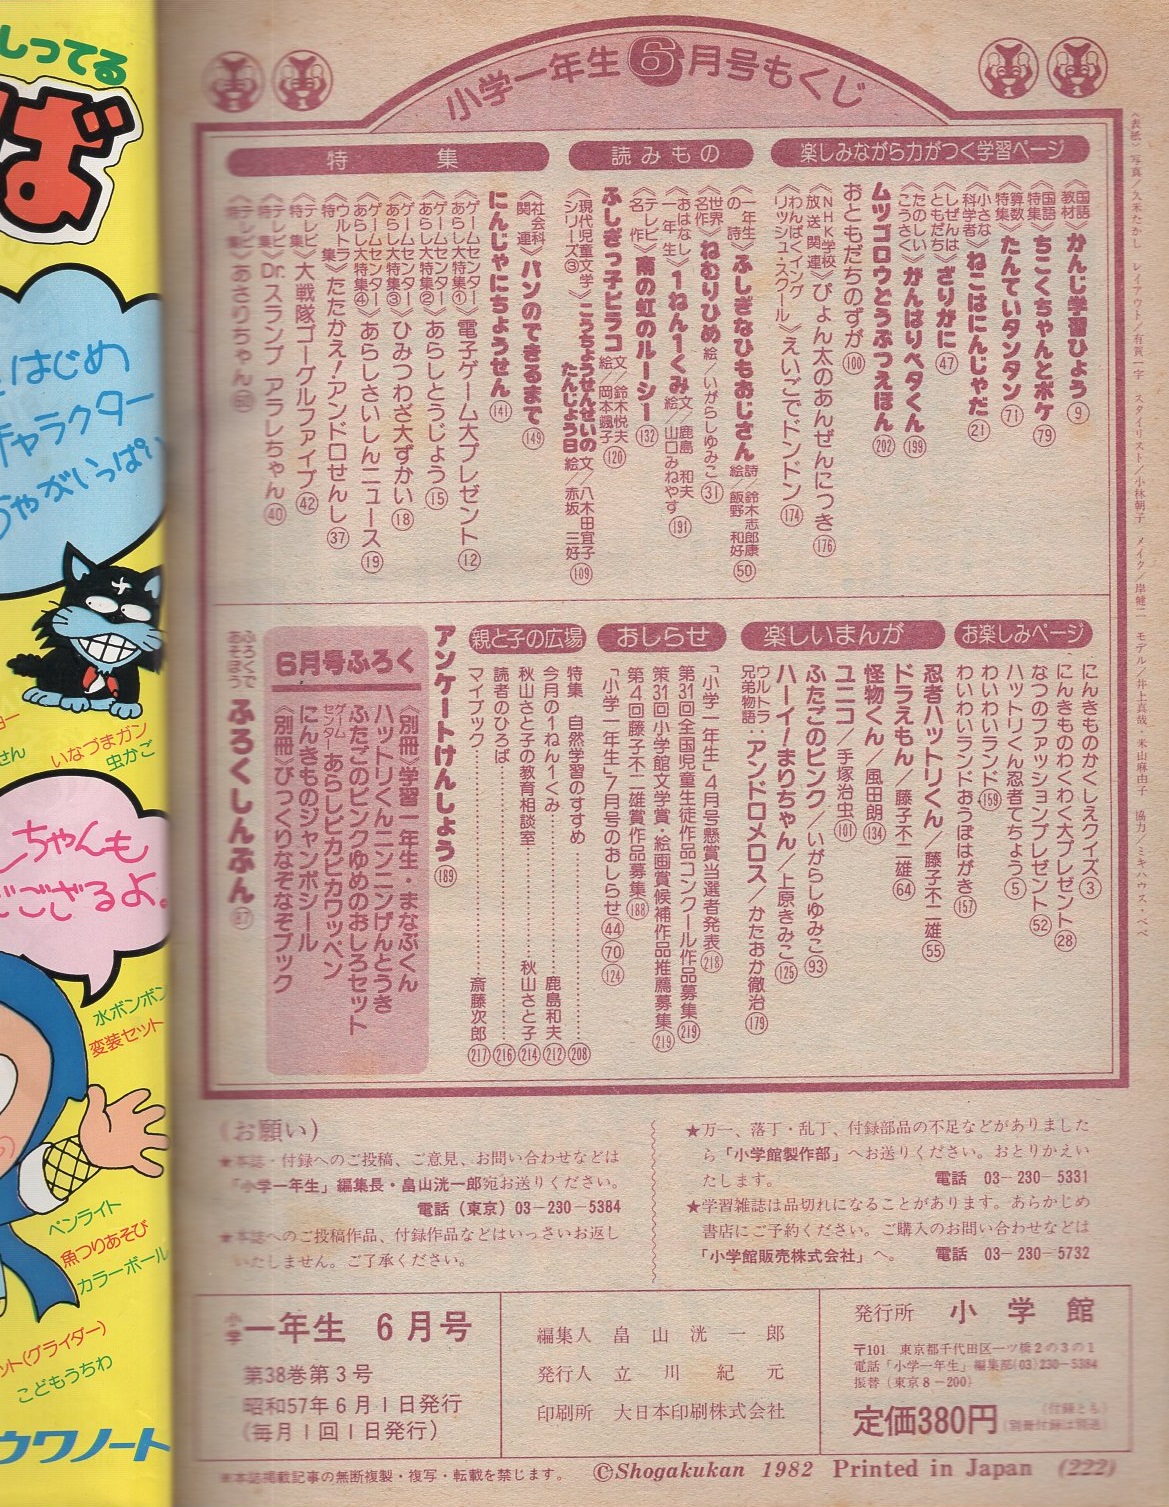 小学一年生6月号もくじ
楽しみながら力がつく学習ページ
《国語教材》かんじ学習ひょう⑨
《国語特集》ちこくちゃんとポケ(79)
《算数特集》たんていタンタン(71)
《小さな科学者》ねこはにんじゃだ(21)
《しぜんはともだち》ざりがに(47)
《たのしいこうさく》がんばりペタくん(199)
ムツゴロウとうぶつえほん(202)
おともだちのずが(100)
《NHK学校放送関連》ぴょん太のあんぜんにっき(176)
《わんぱくイングリッシュ・スクール》えいごでドンドン(174)
読みもの
《一年生の詩》ふしぎなひもおじさん 詩/鈴木志郎康 絵/飯野和好(50)
《世界名作》ねむりひめ 絵/いがらしゆみこ(31)
《おはなし一年生》1ねん1くみ 文/鹿島和夫 絵/山口みねやす(191)
《テレビ名作》南の虹のルーシー(132)
ふしぎっ子ピラコ 文/鈴木悦夫 絵/岡本颯子(120)
《現代児童文学シリーズ③》こうちょうせんせいのたんじょう日 文/八木田宜子 絵/赤坂三好(109)
特集
《社会科関連》パンのできるまで(149)
にんじゃにちょうせん(141)
《ゲームセンターあらし大特集①》電子ゲーム大プレゼント(12)
《ゲームセンターあらし大特集②》あらしとうじょう(15)
《ゲームセンターあらし大特集③》ひみつわざ大ずかい(18)
《ゲームセンターあらし大特集④》あらしさいしんニュース(19)
《ウルトラ特集》たたかえ!アンドロせんし(37)
《テレビ特集》大戦隊ゴーグルファイブ(42)
《テレビ特集》Dr.スランプ アラレちゃん(40)
《テレビ特集》あさりちゃん(60)
お楽しみページ
にんきものかくしえクイズ③
にんきものわくわく大プレゼント(28)
なつのファッションプレゼント(52)
ハットリくん忍者てちょう⑤
わいわいランド(159)
わいわいランドおうぼはがき(157)
楽しいまんが
忍者ハットリくん/藤子不二雄(55)
ドラえもん/藤子不二雄(64)
怪物くん/風田朗(134)
ユニコ/手塚治虫(101)
ふたごのピンク/いがらしゆみこ(93)
ハーイ!まりちゃん/上原きみこ(125)
ウルトラ兄弟物語:アンドロメロス/かたおか徹治(179)
おしらせ
「小学一年生」4月号懸賞当選者発表(218)
第31回全国児童生徒作品コンクール作品募集(219)
第31回小学館文学賞・絵画賞候補作品推薦募集(219)
第4回藤子不二雄賞作品募集(188)
「小学一年生」7月号のおしらせ(44)(70)(124)
親と子の広場
特集 自然学習のすすめ(208)
今月の1ねん1くみ 鹿島和夫(212)
秋山さと子の教育相談室 秋山さと子(214)
読者のひろば(216)
マイブック 斎藤次郎(217)
アンケートけんしょう(189)
6月号ふろく
《別冊》学習一年生・まなぶくん
ハットリくんニンニンげんとうき
ふたごのピンクゆめのおしろセット
ゲームセンターあらしピカピカワッペン
にんきものジャンボシール
《別冊》びっくりなぞなぞブック
ふろくであそぼう ふろくしんぶん(87)
《表紙》写真/久米たかし レイアウト/有賀一宇 スタイリスト/小林朝子 メイク/岸健二 モデル/井上真哉・米山麻由子 協力/ミキハウス・べべ
(お願い)
★本誌・付録へのご投稿、ご意見、お問い合わせなどは
「小学一年生」編集長・畠山洸一郎宛お送りください。
電話(東京)03-230-5384
★本誌へのご投稿作品、付録作品などはいっさいお返し
いたしません。ご了承ください。
★万一、落丁・乱丁、付録部品の不足などがありました
ら「小学館製作部」へお送りください。おとりかえい
たします。 電話 03-230-5331
★学習雑誌は品切れになることがあります。あらかじめ
書店にご予約ください。ご購入のお問い合わせなどは
「小学館販売株式会社」へ。 電話 03-230-5732
小学一年生 6月号
第38巻第3号
昭和57年6月1日発行
(毎月1回1日発行)
編集人 畠山洸一郎
発行人 立川紀元
印刷所 大日本印刷株式会社
発行所 小学館
〒101 東京都千代田区一ツ橋2の3の1
電話「小学一年生」編集部(03)230-5384
振替(東京8-200)
定価380円
(付録とも)
(別冊付録は別途)
※本誌掲載記事の無断複製・複写・転載を禁じます。
©Shogakukan 1982 Printed in Japan (222)
しってる
ば
はじめ
キャラクター
ちゃがいっぱい
せん
いなづまガン
虫かご
ちゃんも
ござるよ。
水ボンボン
変装セット
ペンライト
魚つりあそび
カラーボール
ット(グライダー)
こどもうちわ
ウワノート